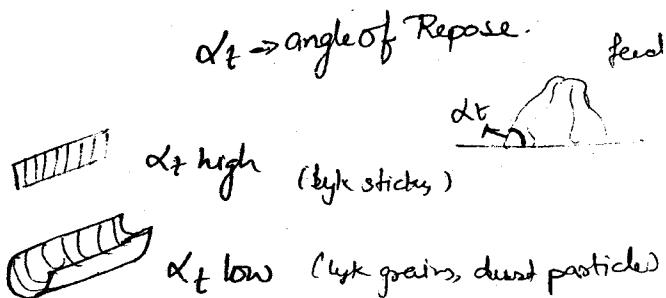 αt → angle of Repose.
feed
αt
αt high (lyk sticks,)
αt low (lyk grains, dust particles)